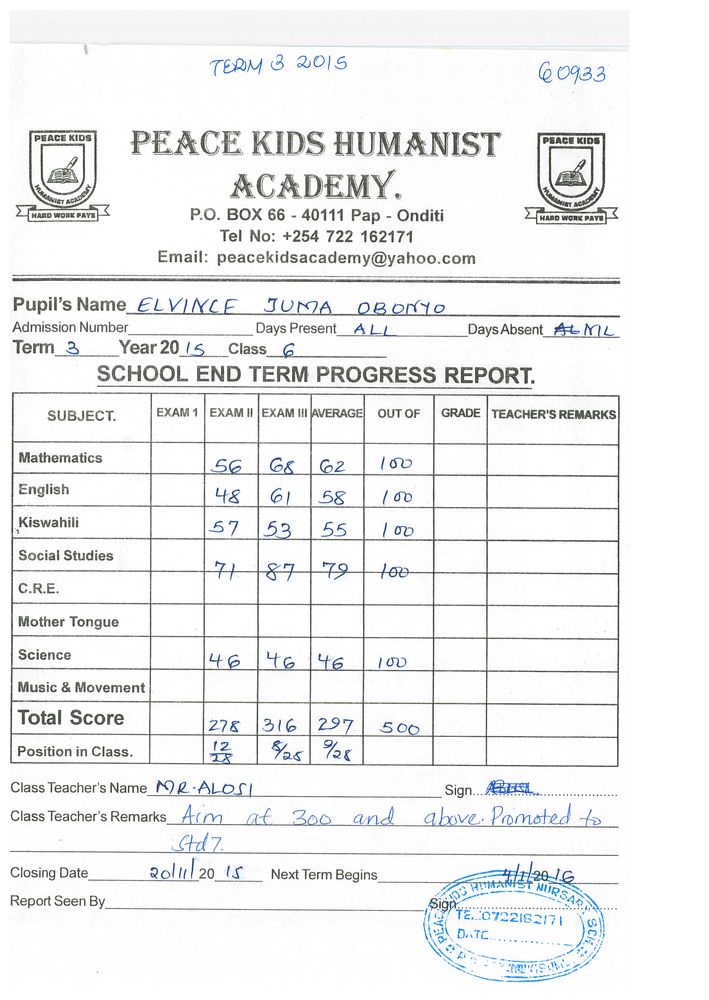 TERM 3 2015
60933
PEACE KIDS
HUMANIST ACADEMY
HARD WORK PAYS
PEACE KIDS HUMANIST
ACADEMY.
PEACE KIDS
HUMANIST ACADEMY
HARD WORK PAYS
P.O. BOX 66 - 40111 Pap - Onditi
Tel No: +254 722 162171
Email: peacekidsacademy@yahoo.com
Pupil's Name ELVINCE JUMA OBONYO
Admission Number Days Present ALL Days Absent NIL
Term 3 Year 2015 Class 6
SCHOOL END TERM PROGRESS REPORT.
SUBJECT. EXAM 1 EXAM II EXAM III AVERAGE OUT OF GRADE TEACHER'S REMARKS
Mathematics 56 68 62 100
English 48 61 58 100
Kiswahili 57 53 55 100
Social Studies 71 87 79 100
C.R.E.
Mother Tongue
Science 46 46 46 100
Music & Movement
Total Score 278 316 297 500
Position in Class. 12/28 8/28 9/28
Class Teacher's Name MR. ALOSI Sign...
Class Teacher's Remarks Aim at 300 and above. Promoted to
Std 7.
Closing Date 20/11/2015 Next Term Begins 4/1/2016
Report Seen By Sign
PEACE KIDS HUMANIST NURSARY SCH.
TE..:0722162171
DATE